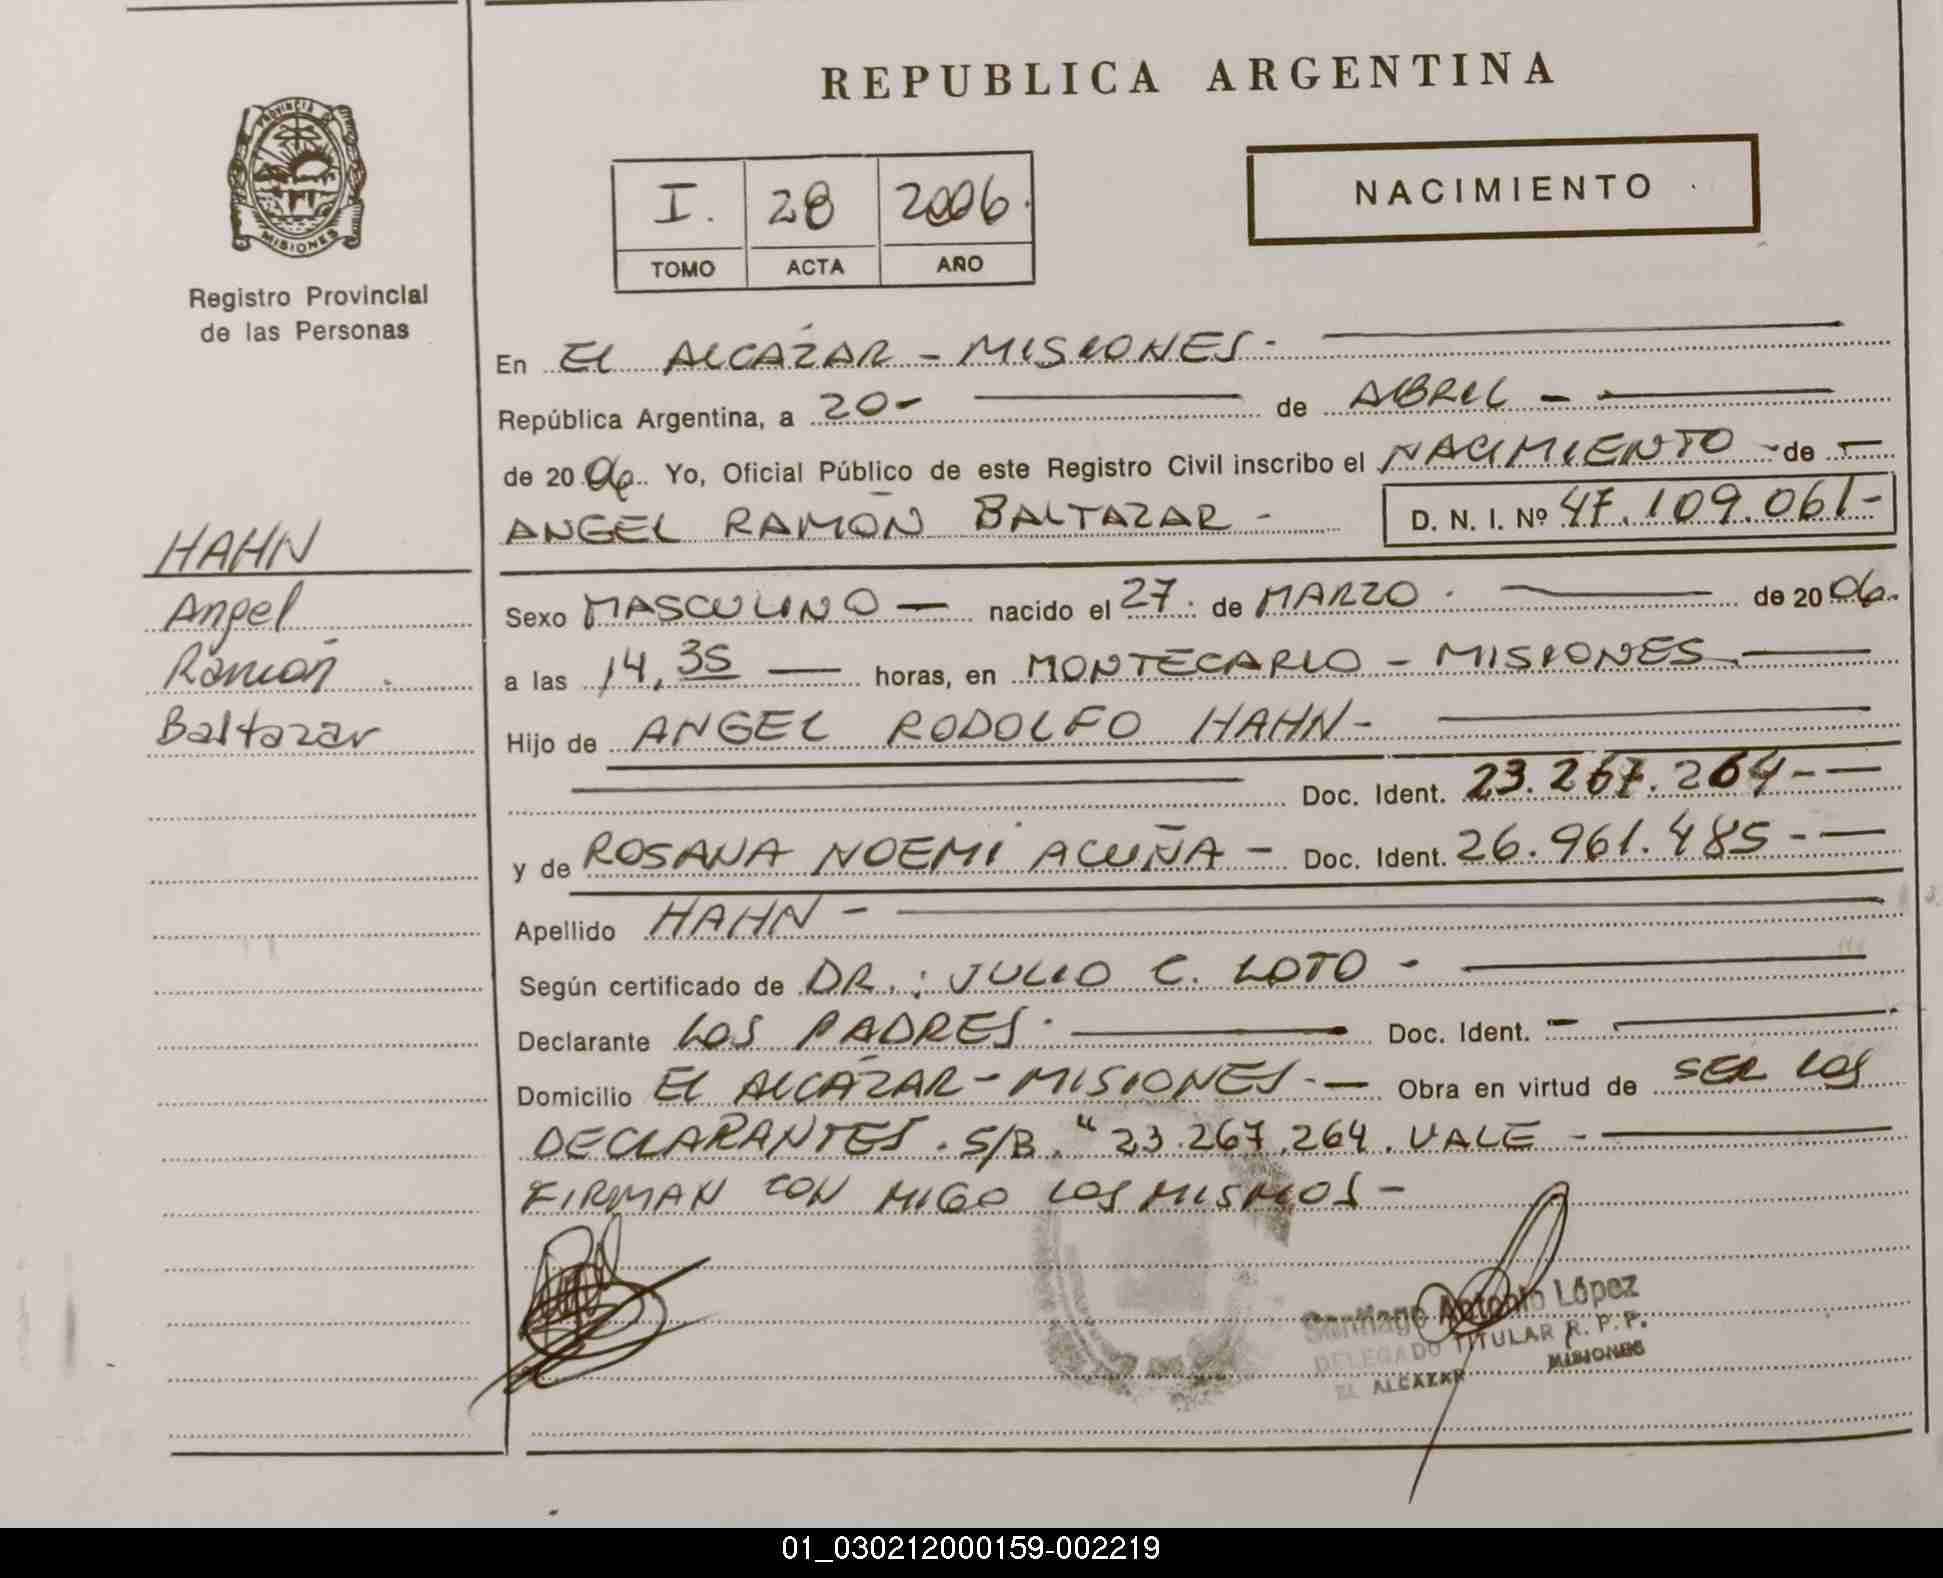 REPUBLICA ARGENTINA
PROVINCIA DE
MISIONES
Registro Provincial
de las Personas
NACIMIENTO
I. 28 2006.
TOMO ACTA AÑO
En EL ALCÁZAR - MISIONES -
República Argentina, a 20 - de ABRIL -
de 20 06. Yo, Oficial Público de este Registro Civil inscribo el NACIMIENTO - de -
ANGEL RAMÓN BALTAZAR - D. N. I. Nº 47.109.061-
HAHN
Angel
Ramón
Baltazar
Sexo MASCULINO - nacido el 27. de MARZO. de 20 06.
a las 14,35 horas, en MONTECARLO - MISIONES.
Hijo de ANGEL RODOLFO HAHN -
Doc. Ident. 23.267.264 -
y de ROSANA NOEMI ACUÑA - Doc. Ident. 26.961.485 -
Apellido HAHN -
Según certificado de DR.: JULIO C. LOTO -
Declarante LOS PADRES. Doc. Ident. -
Domicilio EL ALCÁZAR - MISIONES. - Obra en virtud de SER LOS
DECLARANTES. S/B. "23.267.264. VALE -
FIRMAN CON MIGO LOS MISMOS -
Santiago Antonio López
DELEGADO TITULAR R. P. P.
EL ALCAZAR MISIONES
01_030212000159-002219